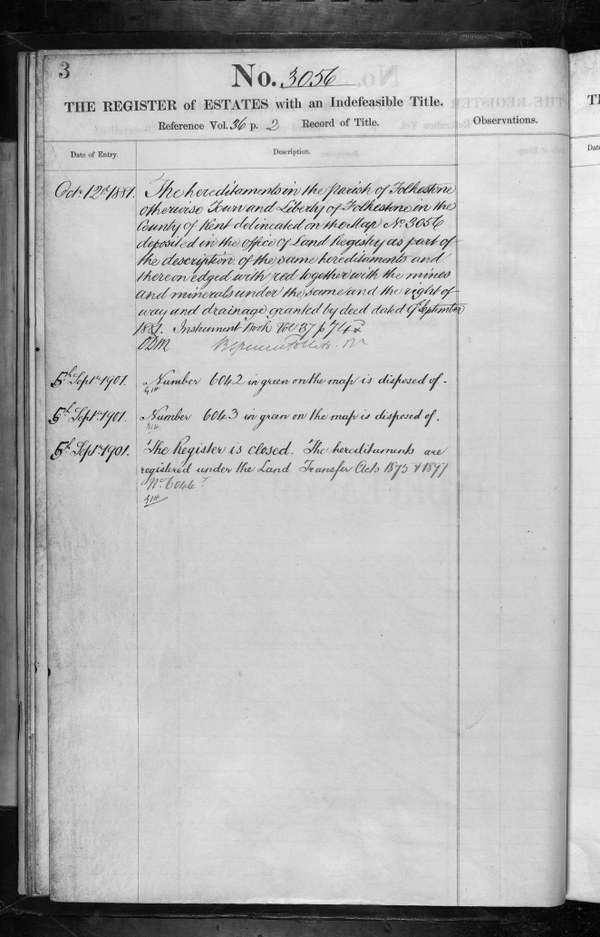 3
No. 3056
THE REGISTER of ESTATES with an Indefeasible Title.
Reference Vol. 36 p. 2 Record of Title.
Observations.
Date of Entry.
Description.
Octr. 12th 1881. The hereditaments in the Parish of Folkestone
otherwise Town and Liberty of Folkestone in the
County of Kent delineated on the Map No. 3056
deposited in the office of Land Registry as part of
the description of the same hereditaments and
thereon edged with red together with the mines
and minerals under the same and the right of
way and drainage granted by deed dated 9th September
1881. Instrument Book Vol 37 p 742
5th Septr. 1901. Number 6042 in green on the map is disposed of.
5th Septr. 1901. Number 6043 in green on the map is disposed of.
5th Septr. 1901. The Register is closed. The hereditaments are
registered under the Land Transfer Acts 1875 & 1897
No. 6044